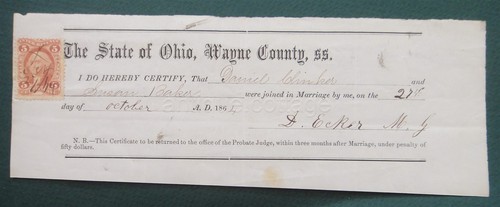 The State of Ohio, Wayne County, ss.
I DO HEREBY CERTIFY, That Daniel and
Susan Baker were joined in Marriage by me, on the 27th
day of October A. D. 186
D. Ecker M. G
N. B.—This Certificate to be returned to the office of the Probate Judge, within three months after Marriage, under penalty of
fifty dollars.